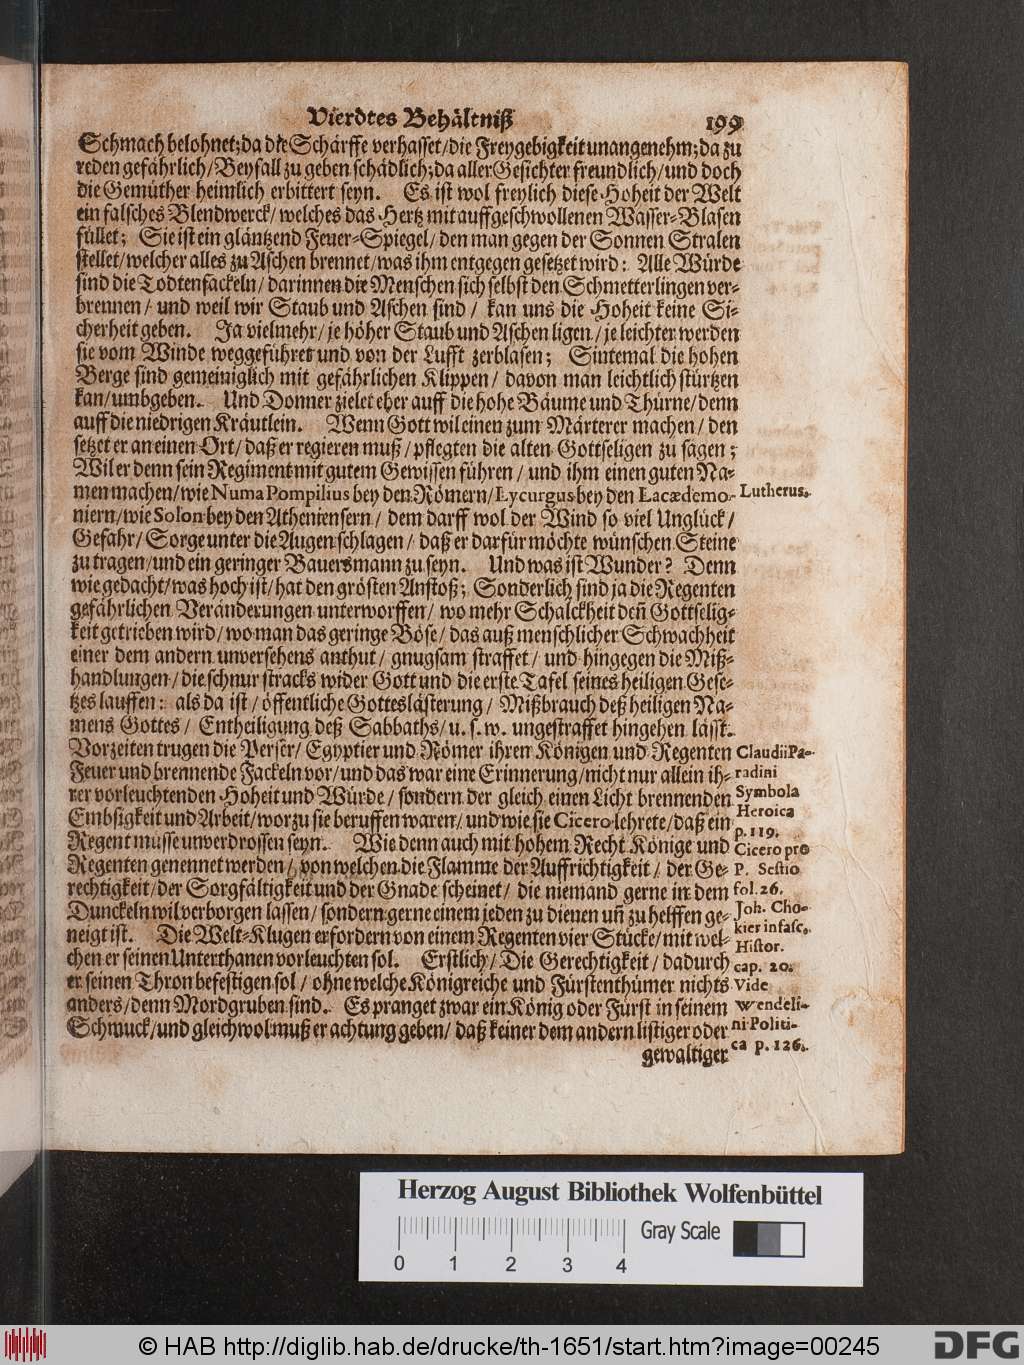 Vierdtes Behältniß 199
Schmach belohnet; da die Schärffe verhasset/ die Freygebigkeit unangenehm; da zu
reden gefährlich/ Beyfall zu geben schädlich; da aller Gesichter freundlich/ und doch
die Gemüther heimlich erbittert seyn. Es ist wol freylich diese Hoheit der Welt
ein falsches Blendwerck/ welches das Hertz mit auffgeschwollenen Wasser-Blasen
füllet; Sie ist ein gläntzend Feuer-Spiegel/ den man gegen der Sonnen Stralen
stellet/ welcher alles zu Aschen brennet/ was ihm entgegen gesetzet wird: Alle Würde
sind die Todtenfackeln/ darinnen die Menschen sich selbst den Schmetterlingen ver-
brennen/ und weil wir Staub und Aschen sind/ kan uns die Hoheit keine Si-
cherheit geben. Ja vielmehr/ je höher Staub und Aschen ligen/ je leichter werden
sie vom Winde weggeführet und von der Lufft zerblasen; Sintemal die hohen
Berge sind gemeiniglich mit gefährlichen Klippen/ davon man leichtlich stürtzen
kan/ umbgeben. Und Donner zielet eher auff die hohe Bäume und Thürne/ denn
auff die niedrigen Kräutlein. Wenn Gott wil einen zum Märterer machen/ den
setzet er an einen Ort/ daß er regieren muß/ pflegten die alten Gottseligen zu sagen;
Wil er denn sein Regiment mit gutem Gewissen führen/ und ihm einen guten Na-
men machen/ wie Numa Pompilius bey den Römern/ Lycurgus bey den Lacædemo-
Lutherus.
niern/ wie Solon bey den Atheniensern/ dem darff wol der Wind so viel Unglück/
Gefahr/ Sorge unter die Augen schlagen/ daß er darfür möchte wünschen Steine
zu tragen/ und ein geringer Bauersmann zu seyn. Und was ist Wunder? Denn
wie gedacht/ was hoch ist/ hat den grösten Anstoß; Sonderlich sind ja die Regenten
gefährlichen Veränderungen unterworffen/ wo mehr Schalckheit deñ Gottselig-
keit getrieben wird/ wo man das geringe Böse/ das auß menschlicher Schwachheit
einer dem andern unversehens anthut/ gnugsam straffet/ und hingegen die Miß-
handlungen/ die schnur stracks wider Gott und die erste Tafel seines heiligen Gese-
tzes lauffen: als da ist/ öffentliche Gotteslästerung/ Mißbrauch deß heiligen Na-
mens Gottes/ Entheiligung deß Sabbaths/ u. s. w. ungestraffet hingehen lässt.
Vorzeiten trugen die Perser/ Egyptier und Römer ihren Königen und Regenten
Feuer und brennende Fackeln vor/ und das war eine Erinnerung/ nicht nur allein ih-
rer vorleuchtenden Hoheit und Würde/ sondern der gleich einen Licht brennenden
Embsigkeit und Arbeit/ worzu sie beruffen waren/ und wie sie Cicero lehrete/ daß ein
Regent müsse unverdrossen seyn. Wie denn auch mit hohem Recht Könige und
Regenten genennet werden/ von welchen die Flamme der Auffrichtigkeit/ der Ge-
rechtigkeit/ der Sorgfältigkeit und der Gnade scheinet/ die niemand gerne in dem
Dunckeln wil verborgen lassen/ sondern gerne einem jeden zu dienen uñ zu helffen ge-
neigt ist. Die Welt-Klugen erfordern von einem Regenten vier Stücke/ mit wel-
chen er seinen Unterthanen vorleuchten sol. Erstlich/ Die Gerechtigkeit/ dadurch
er seinen Thron befestigen sol/ ohne welche Königreiche und Fürstenthümer nichts
anders/ denn Mordgruben sind. Es pranget zwar ein König oder Fürst in seinem
Schmuck/ und gleichwol muß er achtung geben/ daß keiner dem andern listiger oder
gewaltiger
Claudii Pa-
radini
Symbola
Heroica
p. 119.
Cicero pro
P. Sestio
fol. 26.
Joh. Cho-
kier in fasc.
Histor.
cap. 20.
Vide
Wendeli-
ni Politi-
ca p. 126.
Herzog August Bibliothek Wolfenbüttel
Gray Scale
0 1 2 3 4
© HAB http://diglib.hab.de/drucke/th-1651/start.htm?image=00245
DFG